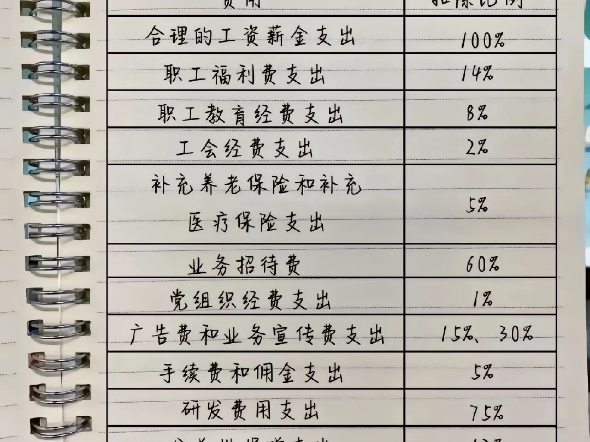 费用 扣除比例
合理的工资薪金支出 100%
职工福利费支出 14%
职工教育经费支出 8%
工会经费支出 2%
补充养老保险和补充
医疗保险支出 5%
业务招待费 60%
党组织经费支出 1%
广告费和业务宣传费支出 15%、30%
手续费和佣金支出 5%
研发费用支出 75%